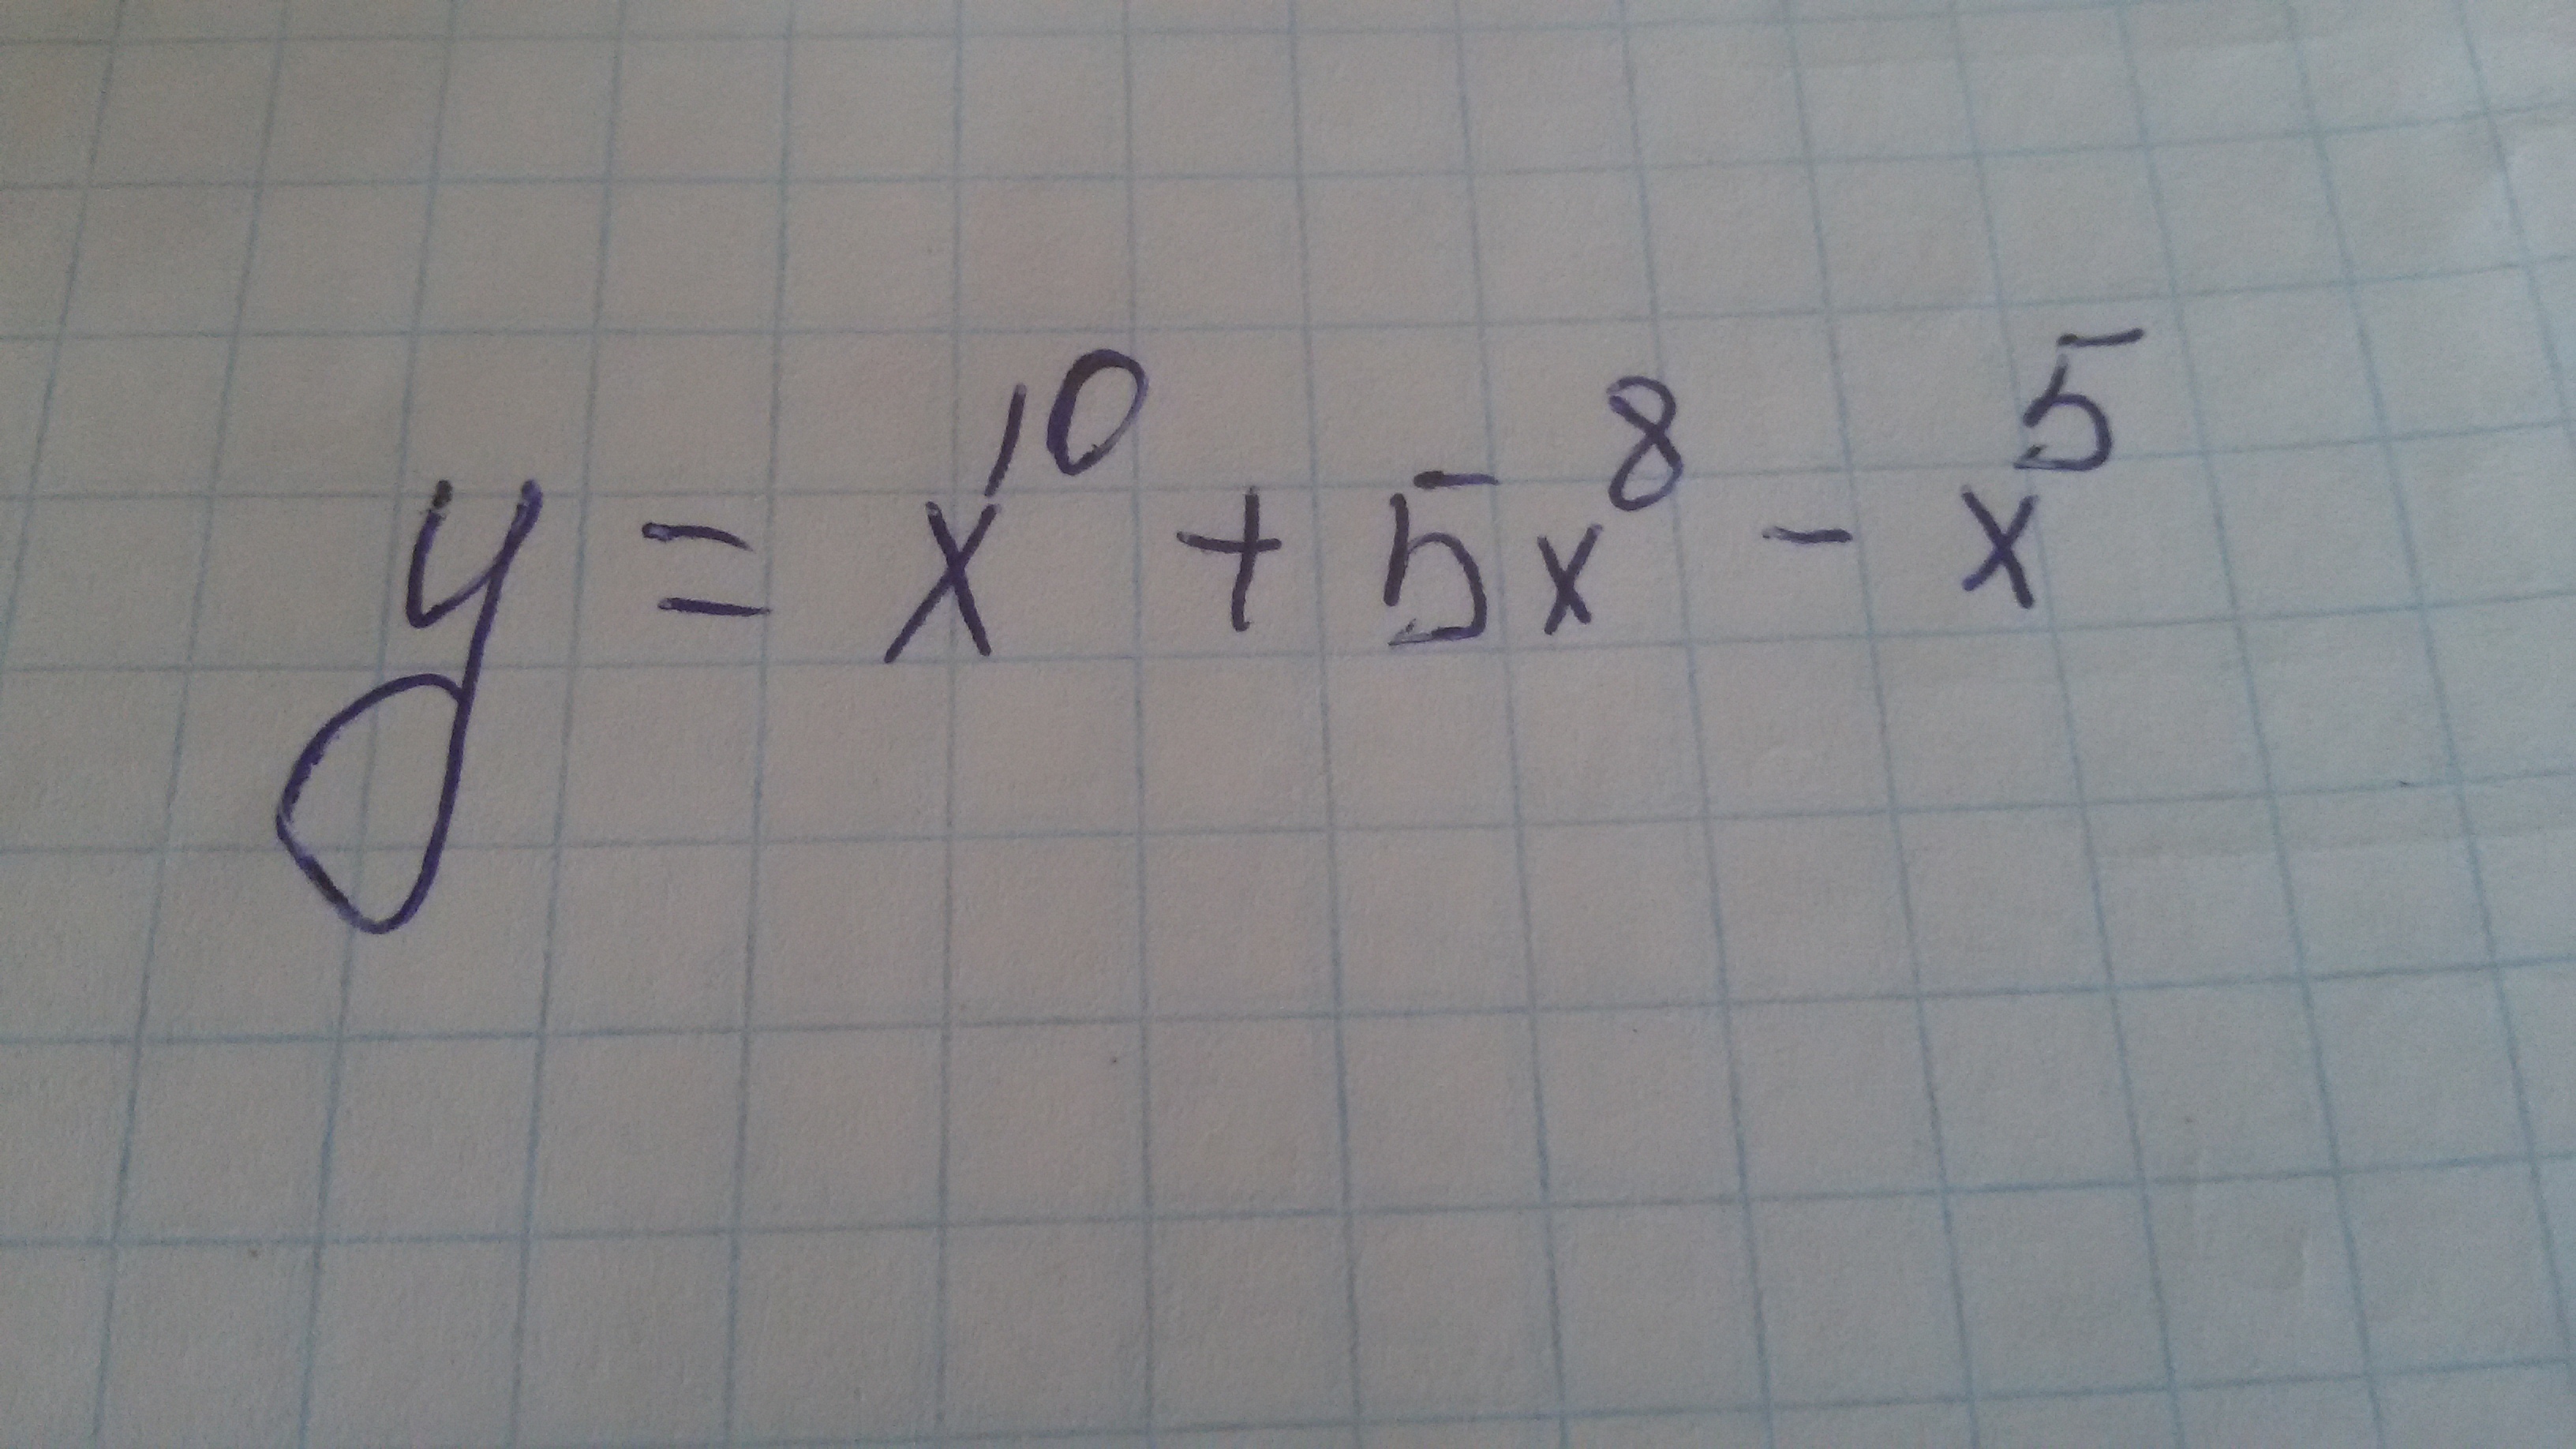 y = x¹⁰ + 5x⁸ - x⁵